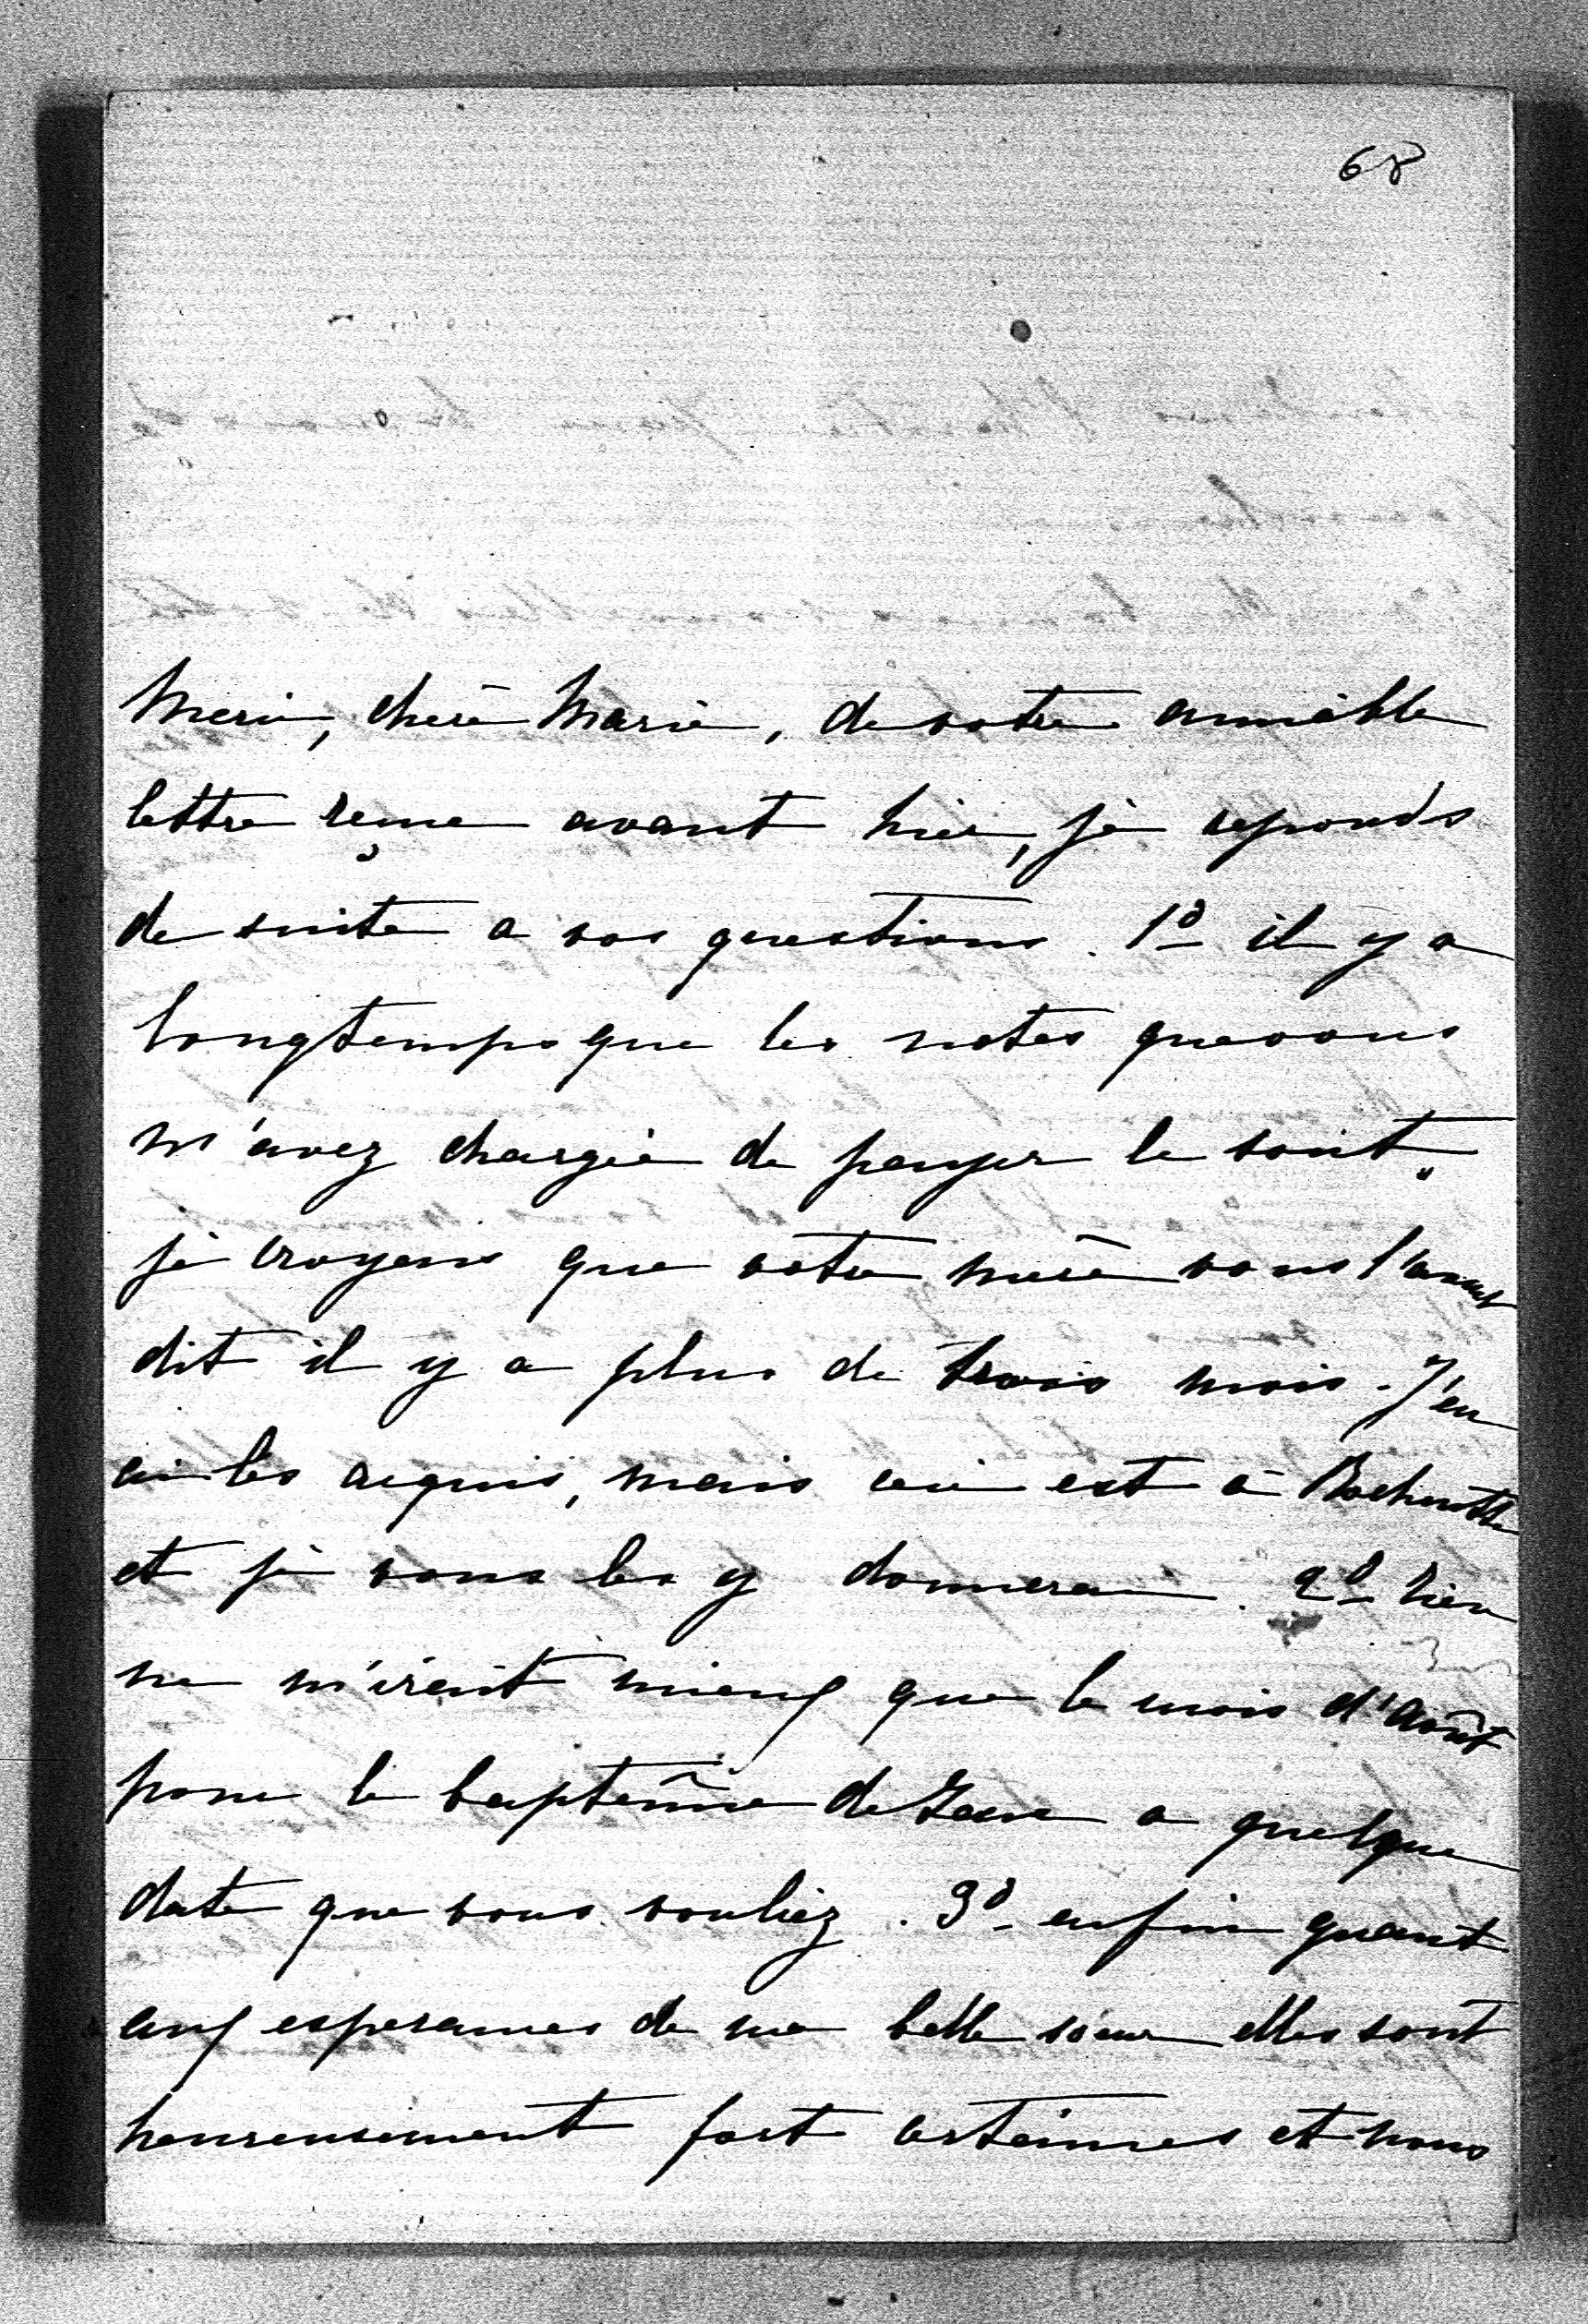 68
Merci, chère Marie, de votre aimable
lettre reçue avant hier, je reponds
de suite a vos questions. 1º il y a
longtemps que les notes que vous
m'avez chargée de payer le sont.
je croyais que votre mère vous l'avait
dit il y a plus de trois mois. J'en
ai les acquis, mais ceci est à Rochecotte
et je vous les y donnerai. 2º rien
ne m'irait mieux que le mois d'août
pour le baptême de Jean a quelque
date que vous vouliez. 3º enfin quant
aux esperances de ma belle soeur elles sont
heureusement fort certaines et nous